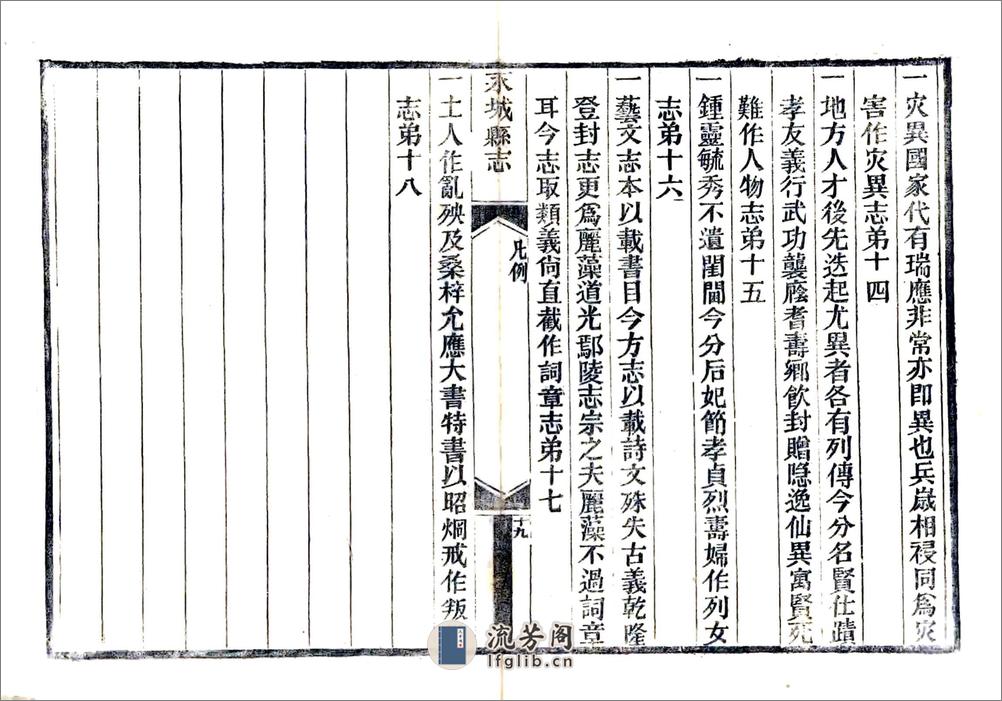 一灾異國家代有瑞應非常亦即異也兵嵗相祲同爲灾
害作灾異志弟十四
一地方人才後先迭起尤異者各有列傳今分名賢仕蹟
孝友義行武功襲廕耆壽鄉飲封贈隐逸仙異寓賢死
難作人物志弟十五
一鍾靈毓秀不遺閨閫今分后妃節孝貞烈壽婦作列女
志弟十六
一藝文志本以載書目今方志以載詩文殊失古義乾隆
登封志更爲麗藻道光鄢陵志宗之夫麗藻不過詞章
耳今志取類義尚直截作詞章志弟十七
永城縣志
凡例
十九
一土人作亂殃及桑梓允應大書特書以昭烱戒作叛
志弟十八
流芳阁
lfglib.cn